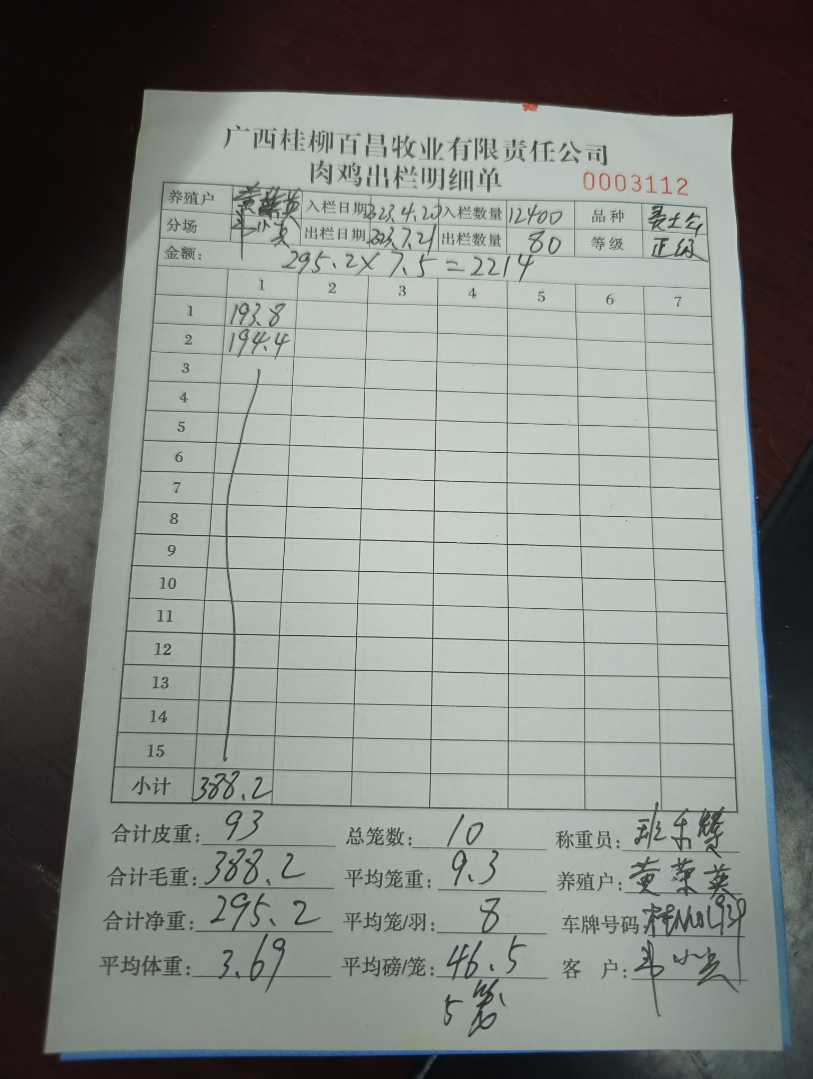 广西桂柳百昌牧业有限责任公司
肉鸡出栏明细单 0003112
养殖户 黄荣英 入栏日期 2023.4.20 入栏数量 12400 品种
分场 出栏日期 2023.7.21 出栏数量 80 等级 正级
金额: 295.2×7.5=2214
1 2 3 4 5 6 7
1 193.8
2 194.4
3
4
5
6
7
8
9
10
11
12
13
14
15
小计 388.2
合计皮重: 93 总笼数: 10 称重员:
合计毛重: 388.2 平均笼重: 9.3 养殖户: 黄荣英
合计净重: 295.2 平均笼/羽: 8 车牌号码
平均体重: 3.69 平均磅/笼: 46.5 客户:
5笼